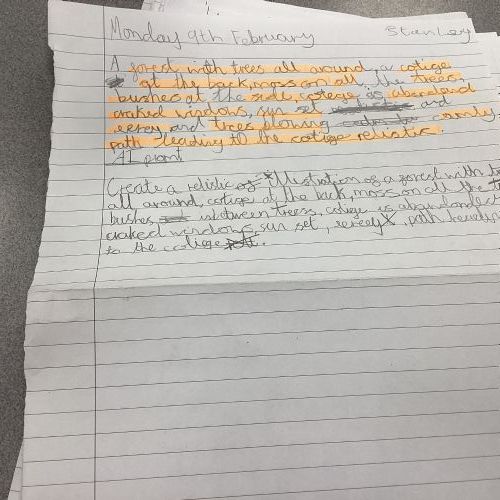 Monday 9th February Stanley
A forest with trees all around, a cotige
at the back, moss on all the trees,
bushes at the side, cotege is abandend
craked windows, sun set and
eerey and trees blowing camly
path leading to the cotige relistic
AI promt
Create a relistic illustration of a forest with
all around, cotige at the back, moss on all the
bushes inbetween treess, cotige is abandanded
craked windows, sun set, eereey, path
to the cotige.